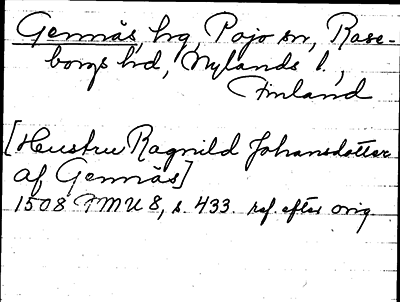 Gennäs, hrg, Pojo sn, Rase-
borgs hd, Nylands l.,
Finland
[Hustru Ragnild Johansdotter
af Gennäs]
1508 FMU 8, s. 433. ref. efter orig.